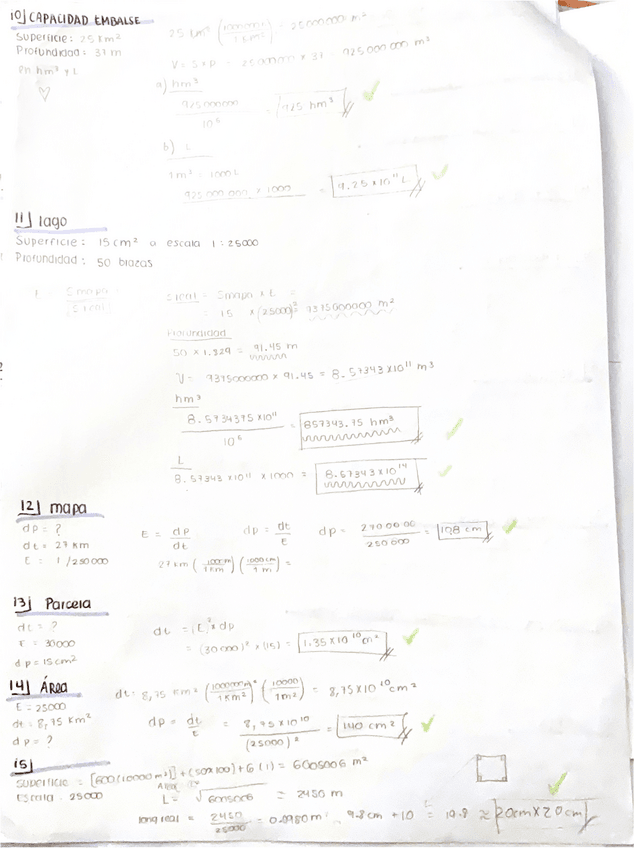 10] CAPACIDAD EMBALSE
Superficie: 25 Km²
Profundidad: 37 m
en hm³ y L
25 Km² (1000000 m² / 1 Km²) = 25000000 m²
V = S × P = 25000000 × 37 = 925 000 000 m³
a) hm³
925000000 / 10⁶ = 925 hm³
b) L
1 m³ = 1000 L
925 000 000 × 1000 = 9.25 × 10¹¹ L
11] lago
Superficie: 15 cm² a escala 1:25000
Profundidad: 50 brazas
Smapa / Sreal
Sreal = Smapa × t =
= 15 × (25000)² = 9375000000 m²
Profundidad
50 × 1.829 = 91.45 m
V = 9375000000 × 91.45 = 8.57343 × 10¹¹ m³
hm³
8.5734375 × 10¹¹ / 10⁶ = 857343.75 hm³
L
8.57343 × 10¹¹ × 1000 = 8.57343 × 10¹⁴
12] mapa
dp = ?
dt = 27 Km
E = 1/250000
E = dp / dt
dp = dt / E
dp = 2700000 / 250000 = 10,8 cm
27 Km (1000 m / 1 Km) (100 cm / 1 m) =
13] Parcela
dt = ?
E = 30000
dp = 15 cm²
dt = (E)² × dp
= (30000)² × (15) = 1.35 × 10¹⁰ cm²
14] ÁREA
E = 25000
dt = 8,75 Km²
dp = ?
dt: 8,75 Km² (1000000 m² / 1 Km²) (10000 / 1 m²) = 8,75 × 10¹⁰ cm²
dp = dt / E = 8,75 × 10¹⁰ / (25000)² = 140 cm²
15]
Superficie = [600 (10000 m²)] + (50 × 100) + 6 (1) = 6005006 m²
Escala = 25000
L = √6005006 = 2450 m
long real = 2450 / 25000 = 0.0980 m 9.8 cm + 10 = 19.8 ≈ 20cm × 20cm